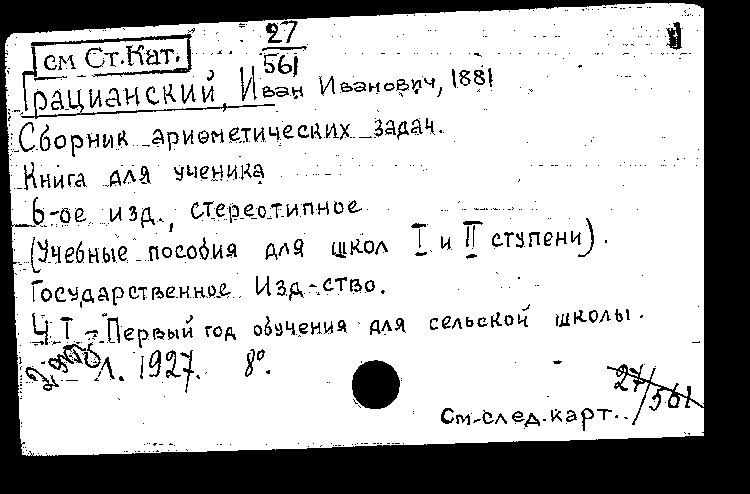 см Ст.Кат.
27
561
Грацианский, Иван Иванович, 1881
Сборник арифметических задач.
Книга для ученика
6-ое изд., стереотипное
(Учебные пособия для школ I и II ступени).
Государственное Изд-ство.
Ч I - Первый год обучения для сельской школы.
Л. 1927. 8°.
27/561
См-след.карт..